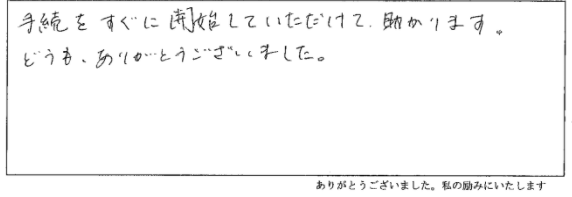 手続をすぐに開始していただけて、助かります。
どうも、ありがとうございました。
ありがとうございました。私の励みにいたします